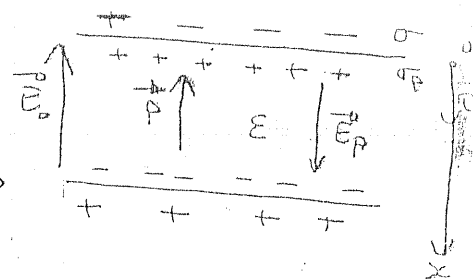 − − − − σ
+ + + + + + σₚ
E⃗₀ P⃗ ε E⃗ₚ
− − − − − −
+ + + +
x